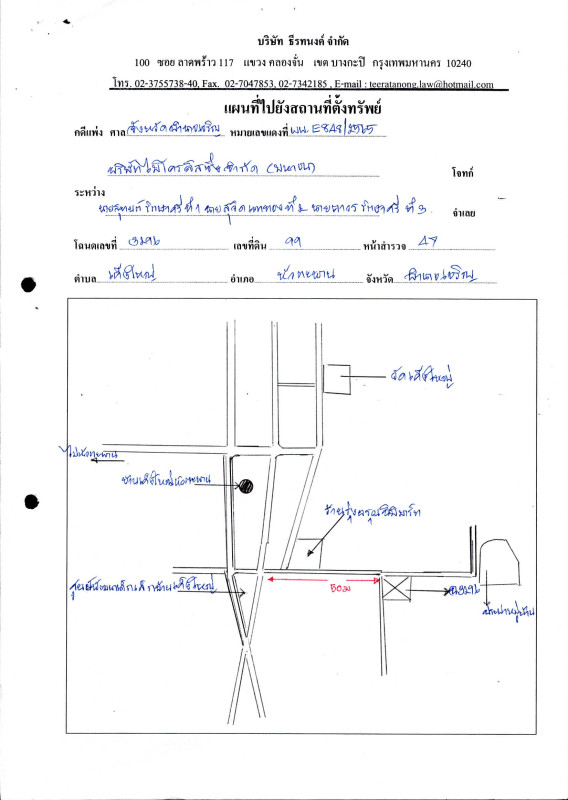 บริษัท ธีรทนงค์ จำกัด
100 ซอย ลาดพร้าว 117 แขวง คลองจั่น เขต บางกะปิ กรุงเทพมหานคร 10240
โทร. 02-3755738-40, Fax. 02-7047853, 02-7342185 , E-mail : teeratanong.law@hotmail.com
แผนที่ไปยังสถานที่ตั้งทรัพย์
คดีแพ่ง ศาล จังหวัดอำนาจเจริญ หมายเลขแดงที่ ผบ.E848/2565
โจทก์
ระหว่าง
จำเลย
โฉนดเลขที่ 3296 เลขที่ดิน 99 หน้าสำรวจ 47
ตำบล เค็งใหญ่ อำเภอ หัวตะพาน จังหวัด อำนาจเจริญ
วัดเค็งใหญ่
ไปหัวตะพาน
ร้านรุ่งอรุณมินิมาร์ท
ศูนย์พัฒนาเด็กเล็กบ้านเค็งใหญ่
50ม
ฉ.3296